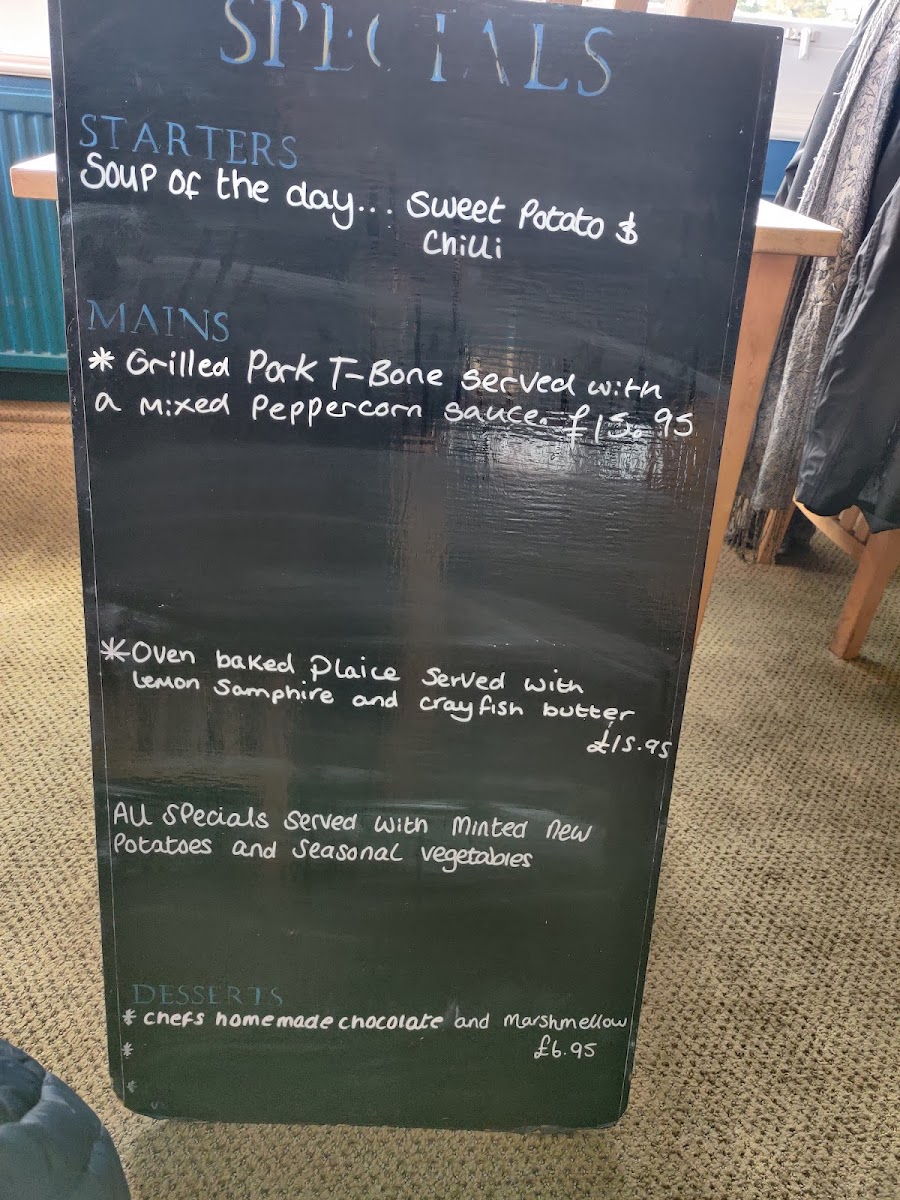 SPECIALS
STARTERS
Soup of the day... Sweet Potato &
Chilli
MAINS
* Grilled Pork T-Bone served with
a mixed Peppercorn sauce. £15.95
* Oven baked Plaice served with
lemon Samphire and crayfish butter
£15.95
All Specials served with minted new
Potatoes and seasonal vegetables
DESSERTS
* chefs homemade chocolate and Marshmellow
* £6.95